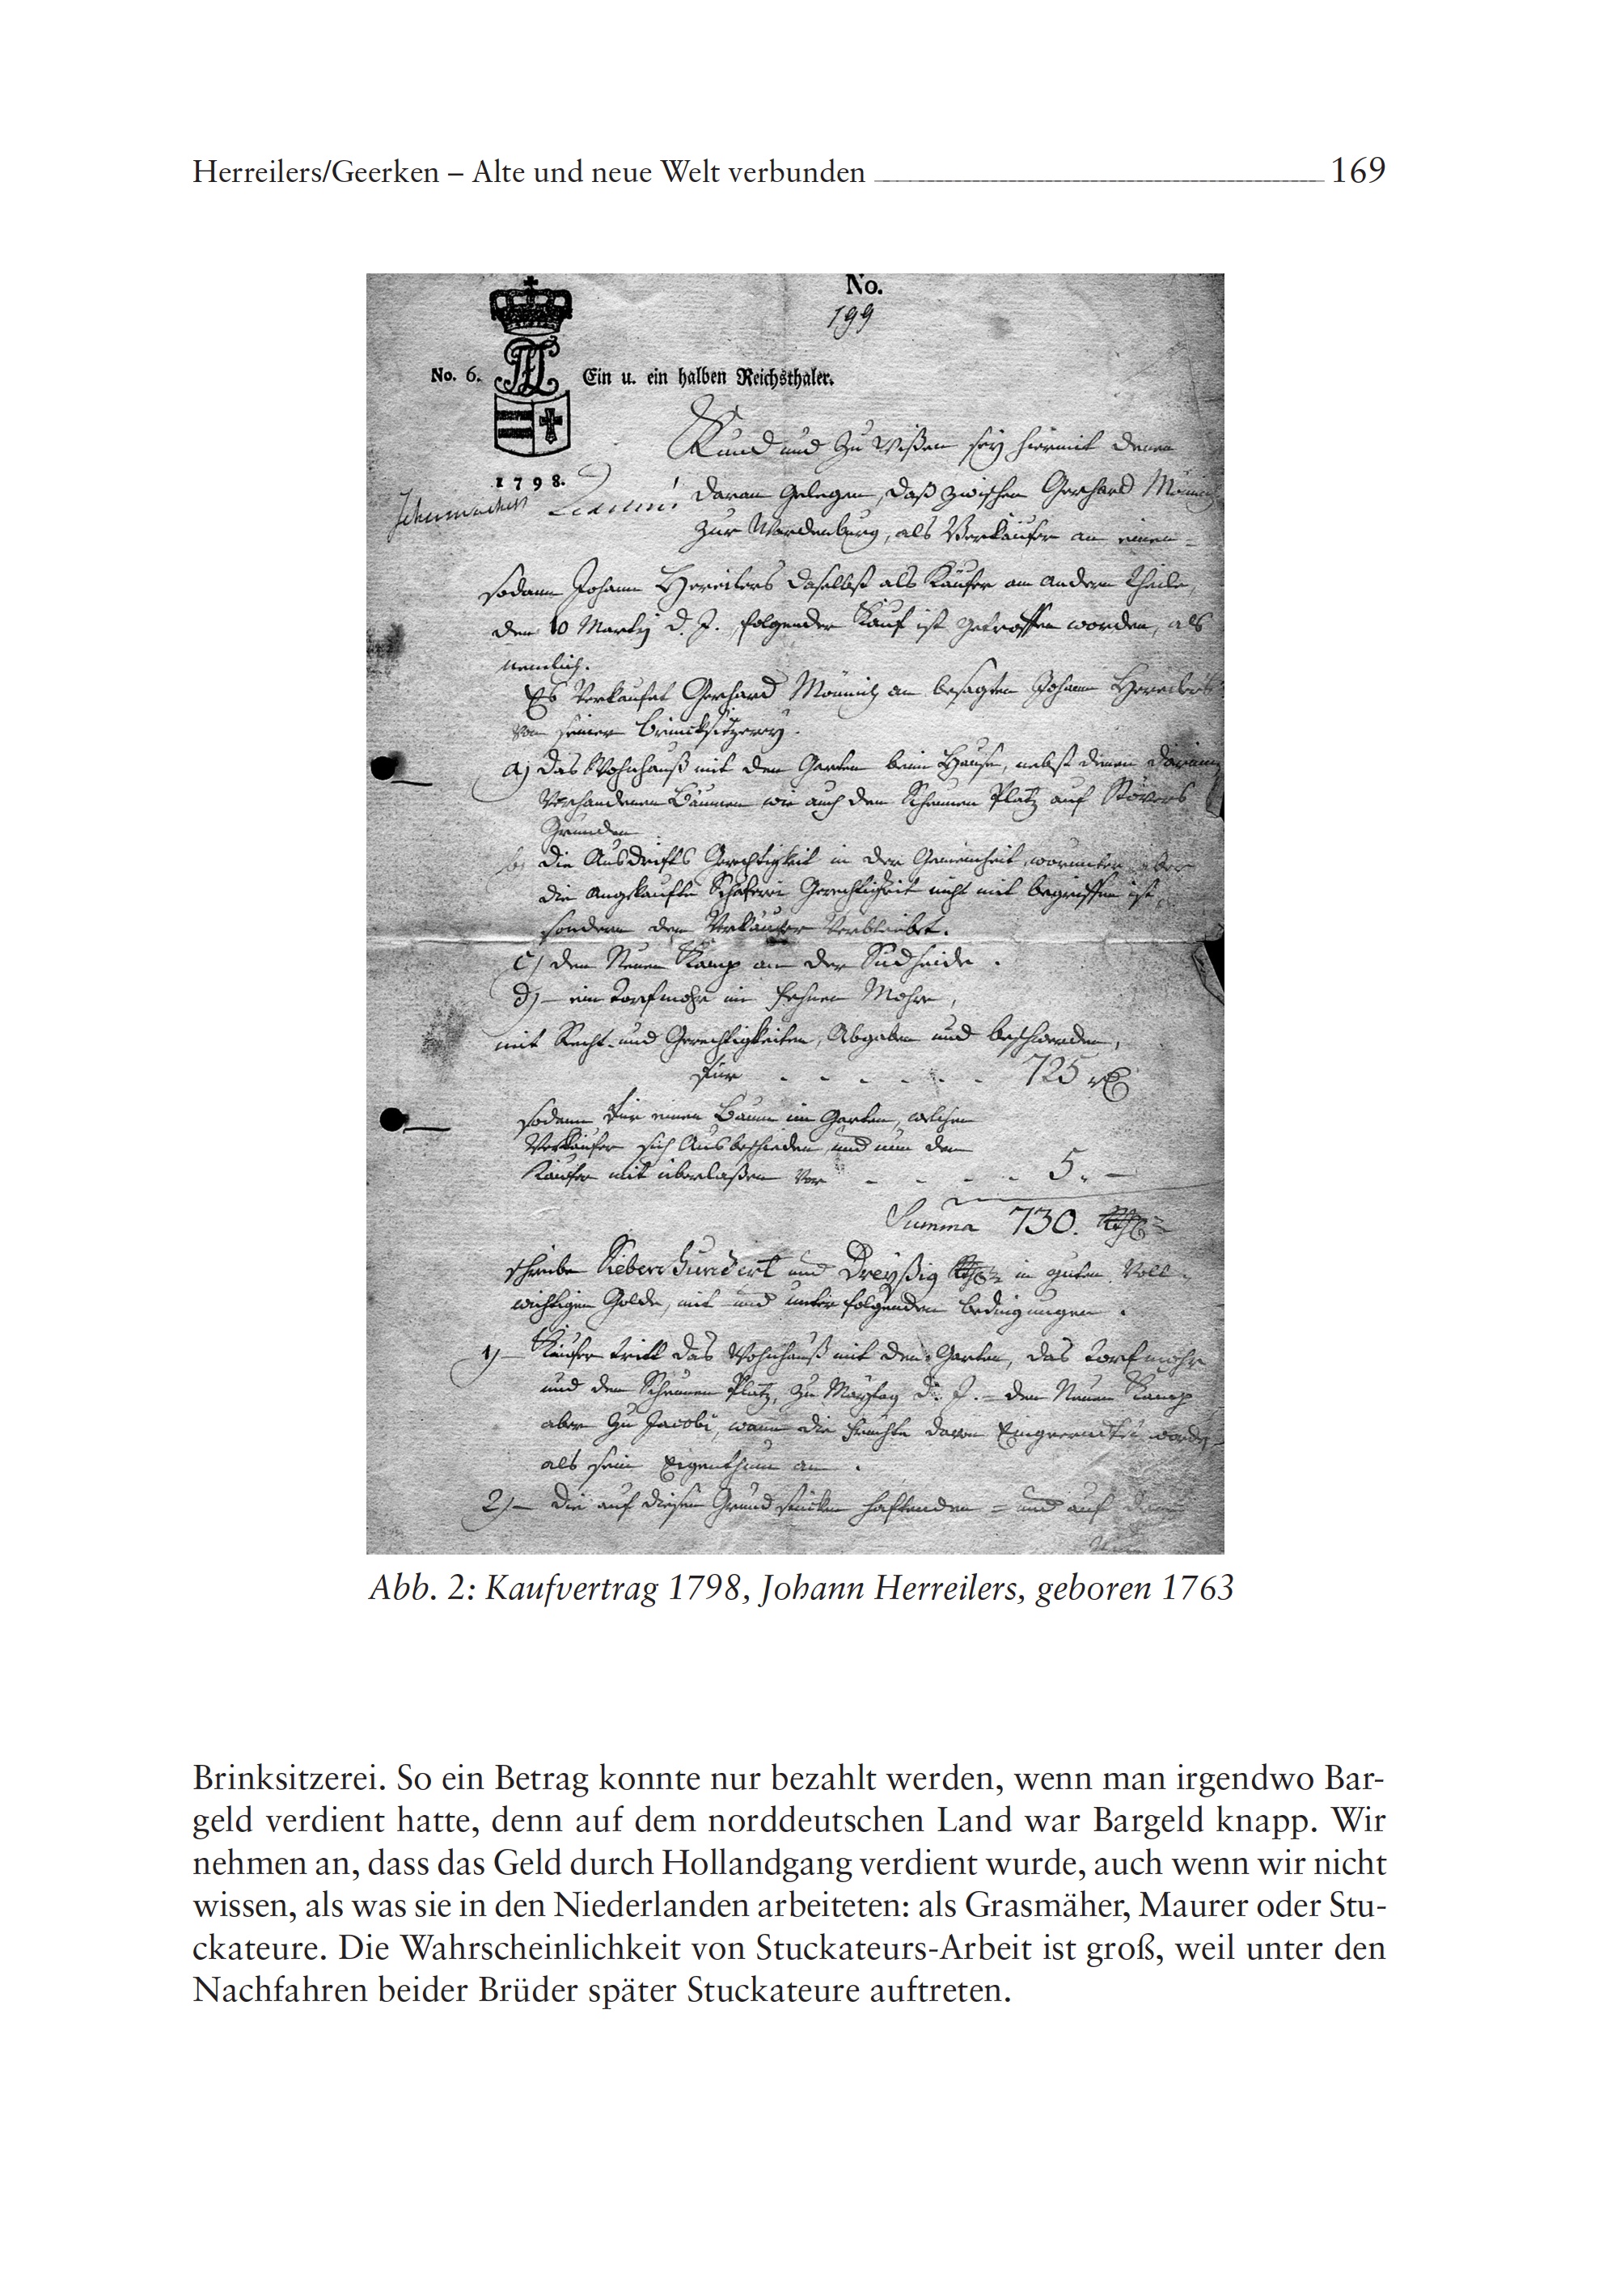 Herreilers/Geerken – Alte und neue Welt verbunden 169
No.
199
No. 6. Ein u. ein halben Reichsthaler.
1798.
Kund und zu wißen sey hiermit denen
daran gelegen, daß zwischen Gerhard Mönnich
zur Wardenburg, als Verkäufer an einen
sodann Johann Hereilers daselbst als Käufer am andern Theile,
den 10 Martij d. J. folgender Kauf ist getroffen worden, als
nemlich.
Es verkaufet Gerhard Mönnich an besagten Johann Hereilers
von seiner Brincksitzerey.
a) das Wohnhauß mit den Garten beim Hause, nebst denen darinn
vorhandenen Bäumen wie auch den Scheunen Platz auf Stövers
Gründen
b) die Ausdrifts Gerechtigkeit in der Gemeinheit, worunter aber
die angekaufte Schäferei Gerechtigkeit nicht mit begriffen ist,
sondern dem Verkäufer verbleibet.
c) den Neuen Kamp an der Südheide.
d) ein Torfmohr im Mohre,
mit Recht und Gerechtigkeiten, Abgaben und beschwerden,
für 725
sodann für einen Baum im Garten, welchen
Verkäufer sich Ausbeschieden und nun dem
Käufer mit überlaßen vor 5. —
Summa 730.
schreibe Siebenhundert und Dreyßig in guten Voll
wichtigen Golde, mit und unter folgenden Bedingungen.
1) Käufer tritt das Wohnhauß mit den Garten, das Torfmohr
und den Scheunen Platz, zu Maytag d. J. = den Neuen Kamp
aber zu Jacobi, wann die Früchte davon Eingeerndtet worden
als sein Eigenthum an.
2) die auf diesen Grundstücken haftenden = und auf
Abb. 2: Kaufvertrag 1798, Johann Herreilers, geboren 1763
Brinksitzerei. So ein Betrag konnte nur bezahlt werden, wenn man irgendwo Bar-
geld verdient hatte, denn auf dem norddeutschen Land war Bargeld knapp. Wir
nehmen an, dass das Geld durch Hollandgang verdient wurde, auch wenn wir nicht
wissen, als was sie in den Niederlanden arbeiteten: als Grasmäher, Maurer oder Stu-
ckateure. Die Wahrscheinlichkeit von Stuckateurs-Arbeit ist groß, weil unter den
Nachfahren beider Brüder später Stuckateure auftreten.